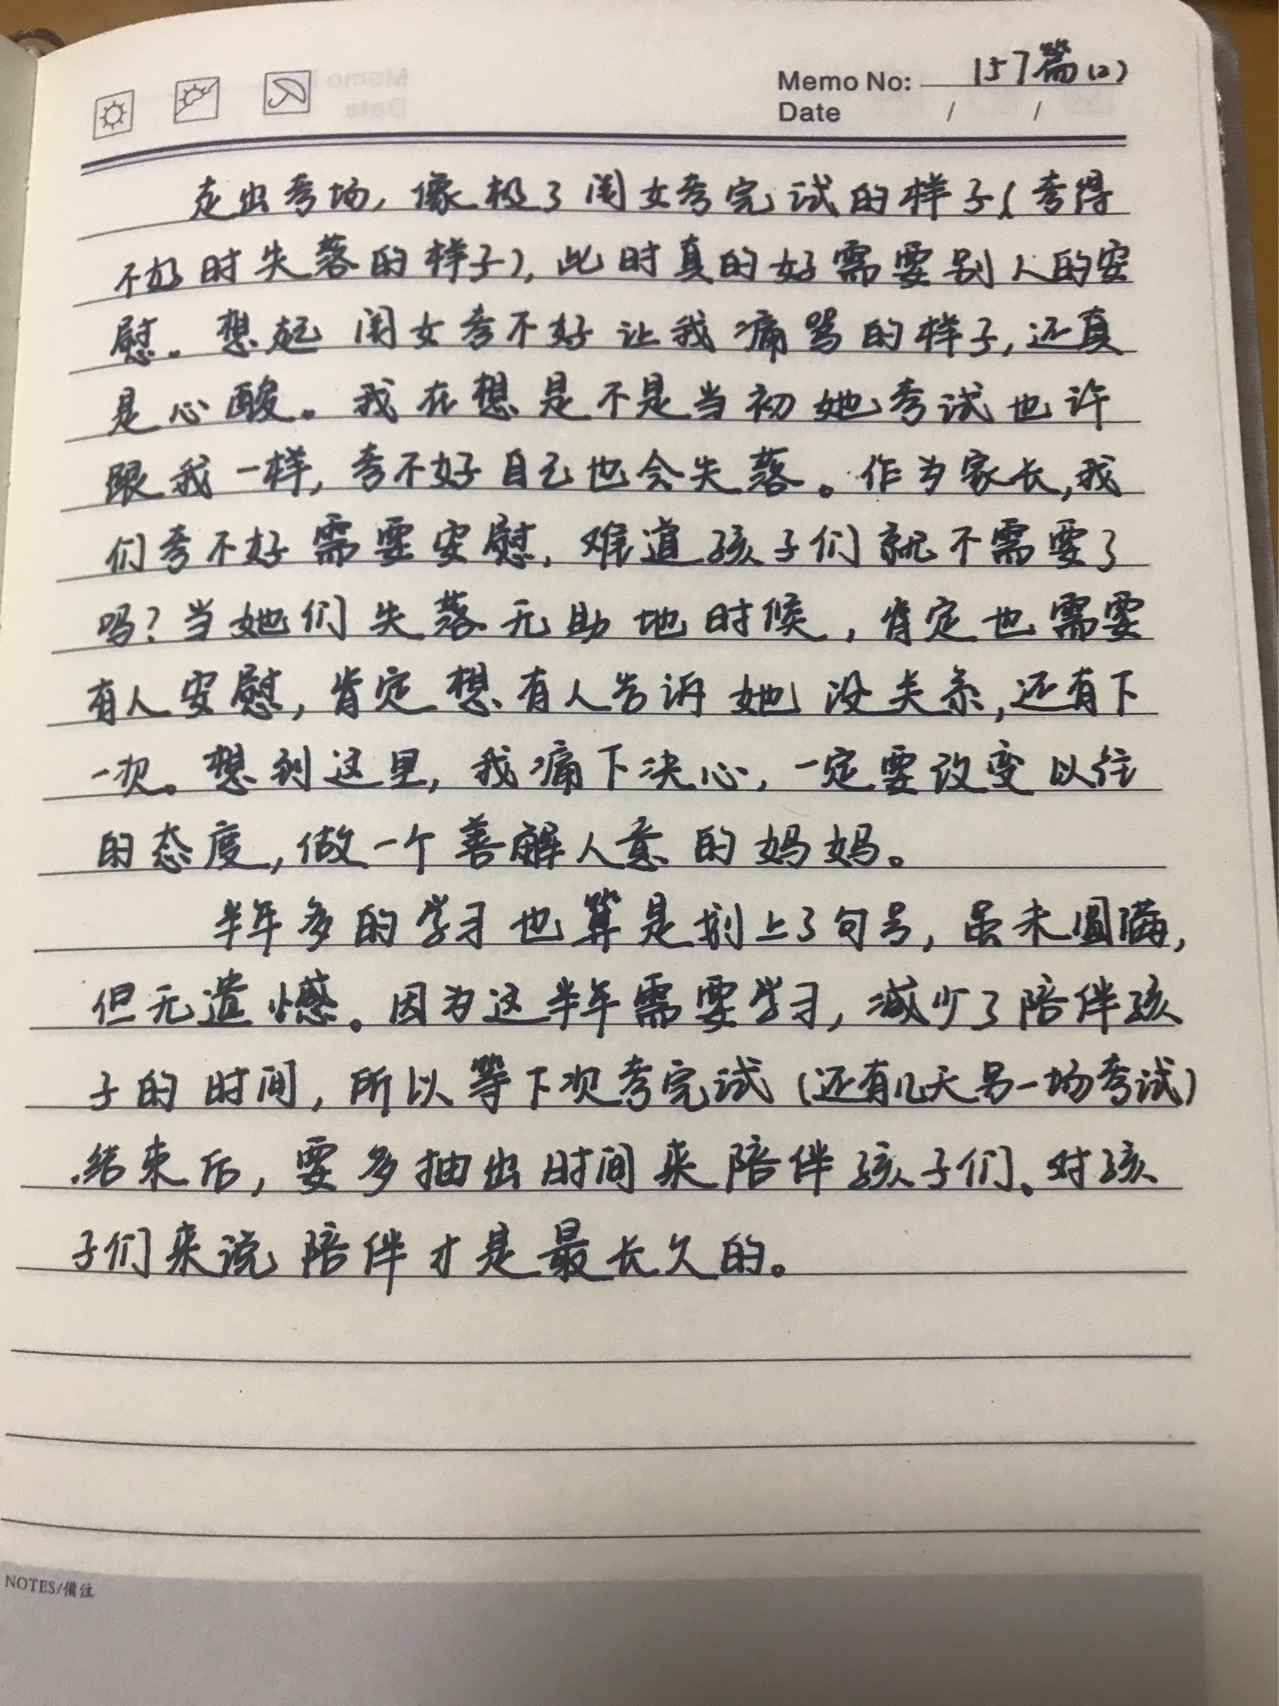 Memo No: 157篇(2)
Date / /
走出考场,像极了闺女考完试的样子(考得
不好时失落的样子),此时真的好需要别人的安
慰。想起闺女考不好让我痛骂的样子,还真
是心酸。我在想是不是当初她考试也许
跟我一样,考不好自己也会失落。作为家长,我
们考不好需要安慰,难道孩子们就不需要了
吗?当她们失落无助地时候,肯定也需要
有人安慰,肯定想有人告诉她没关系,还有下
一次。想到这里,我痛下决心,一定要改变以往
的态度,做一个善解人意的妈妈。
半年多的学习也算是划上了句号,虽未圆满,
但无遗憾。因为这半年需要学习,减少了陪伴孩
子的时间,所以等下次考完试(还有几天另一场考试)
结束后,要多抽出时间来陪伴孩子们、对孩
子们来说陪伴才是最长久的。
NOTES/備注